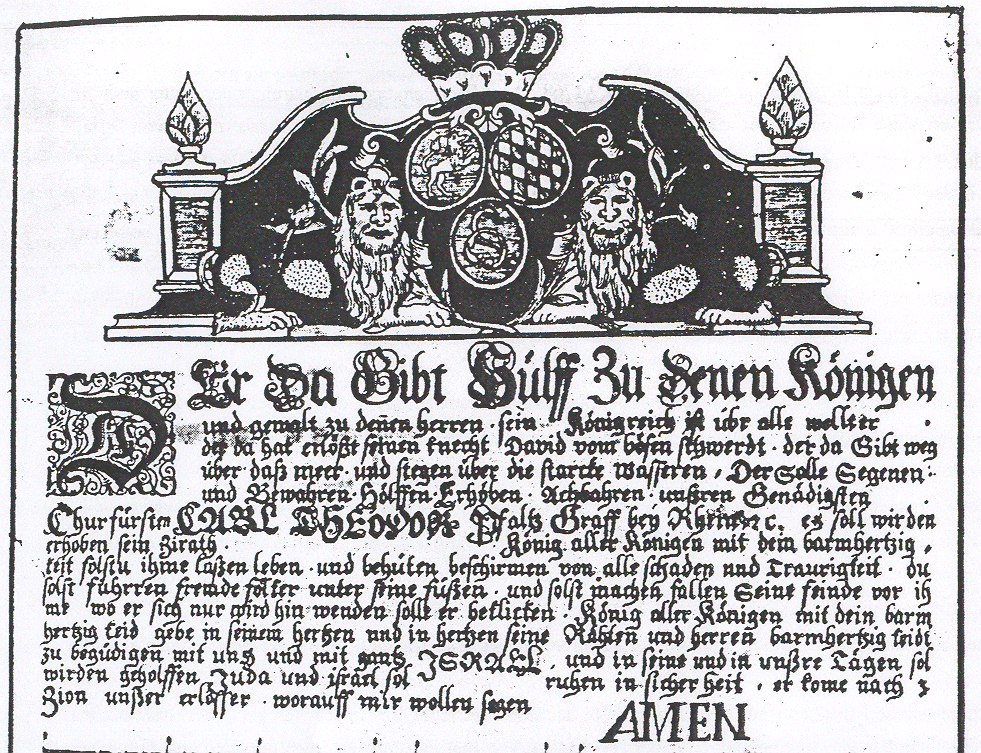 DEr Da Gibt Hülff Zu Denen Königen
und gewalt zu deñen herren · sein Königreich ist übr alle welt er
der da hat erlößt seinen knecht David vom bösen schwerdt · der da Gibt weg
über daß meer · und stegen über die starcke Wasseren · Der Solle Segenen ·
und Bewahren · Hölffen · Erhöhen · Achbahren · unßren Genädigsten
Churfürsten CARL THEODOR Pfaltz Graff bey Rhein ec. es soll wirden
erhoben sein Zirath · König aller Königen mit dein barmhertzig,
keit solstu ihme laßen leben · und behüten beschirmen von alle schaden und Traurigkeit · du
solst führren fremde folker unter seine füßen · und solst machen fallen Seine feinde vor ih
me wo er sich nur wird hin wenden solle er beklicken · König aller Königen mit dein barm
hertzig keid gebe in seinem hertzen und in hertzen seine Räthen und herren barmhertzig keidi
zu begüdigen mit unß und mit gantz ISRAEL, und in seine und in unßre Tägen sol
wirden geholffen Juda und israel sol ruhen in sicherheit · er kome nach
Zion unßer erlösser · worauff mir wollen sagen
AMEN